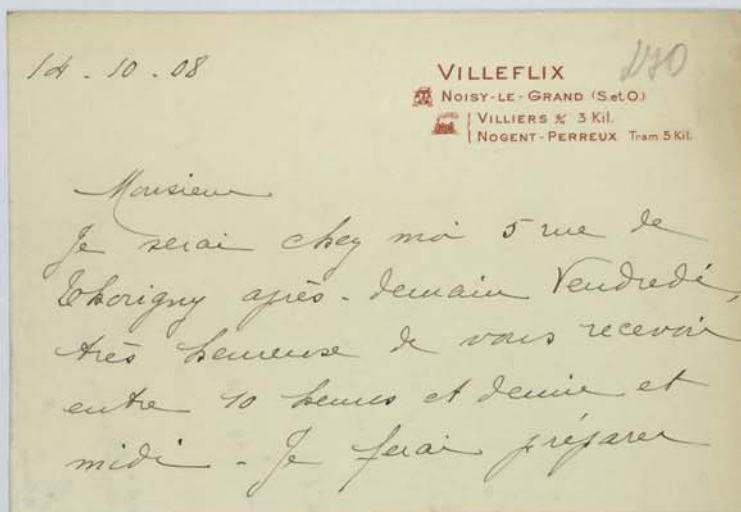 14 - 10 - 08
VILLEFLIX
NOISY-LE-GRAND (S.et O.)
VILLIERS s/M 3 Kil.
NOGENT-PERREUX Tram 5 Kil.
Monsieur
Je serai chez moi 5 rue de
Thorigny après-demain Vendredi,
très heureuse de vous recevoir
entre 10 heures et demie et
midi - Je ferai préparer